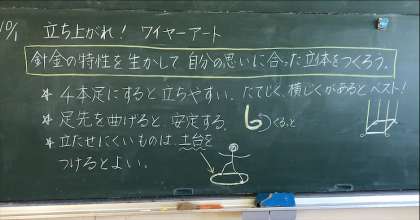 10/1 立ち上がれ！ ワイヤーアート
針金の特性を生かして 自分の思いに合った立体をつくろう。
★ 4本足にすると立ちやすい。たてじく、横じくがあるとベスト！
★ 足先を曲げると、安定する。 くるっと
★ 立たせにくいものは、土台を
つけるとよい。